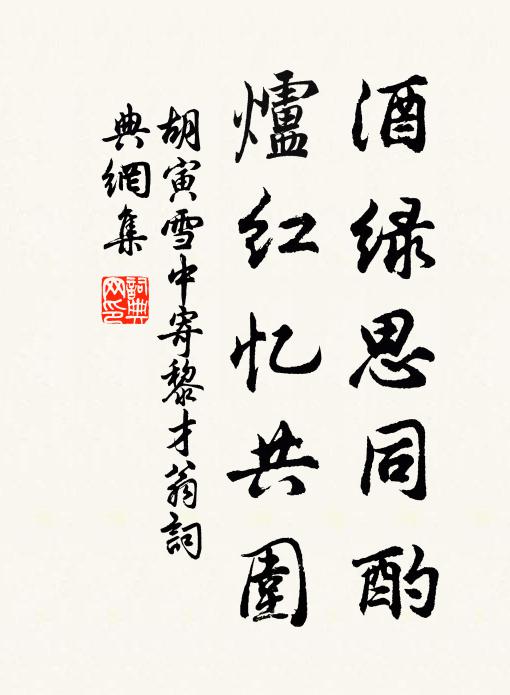 酒绿思同酌
爐红忆共圍
胡寅雪中寄黎才翁詞
典網集
詞典网印